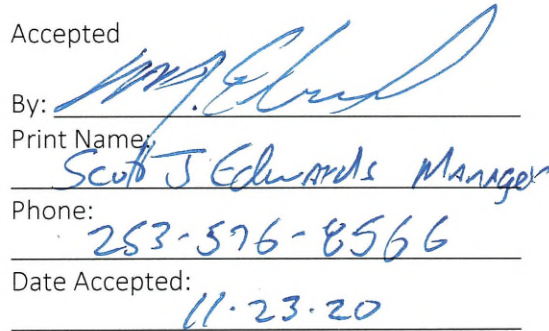 Accepted
By:
Print Name:
Scott J Edwards Manager
Phone:
253-576-8566
Date Accepted:
11.23.20